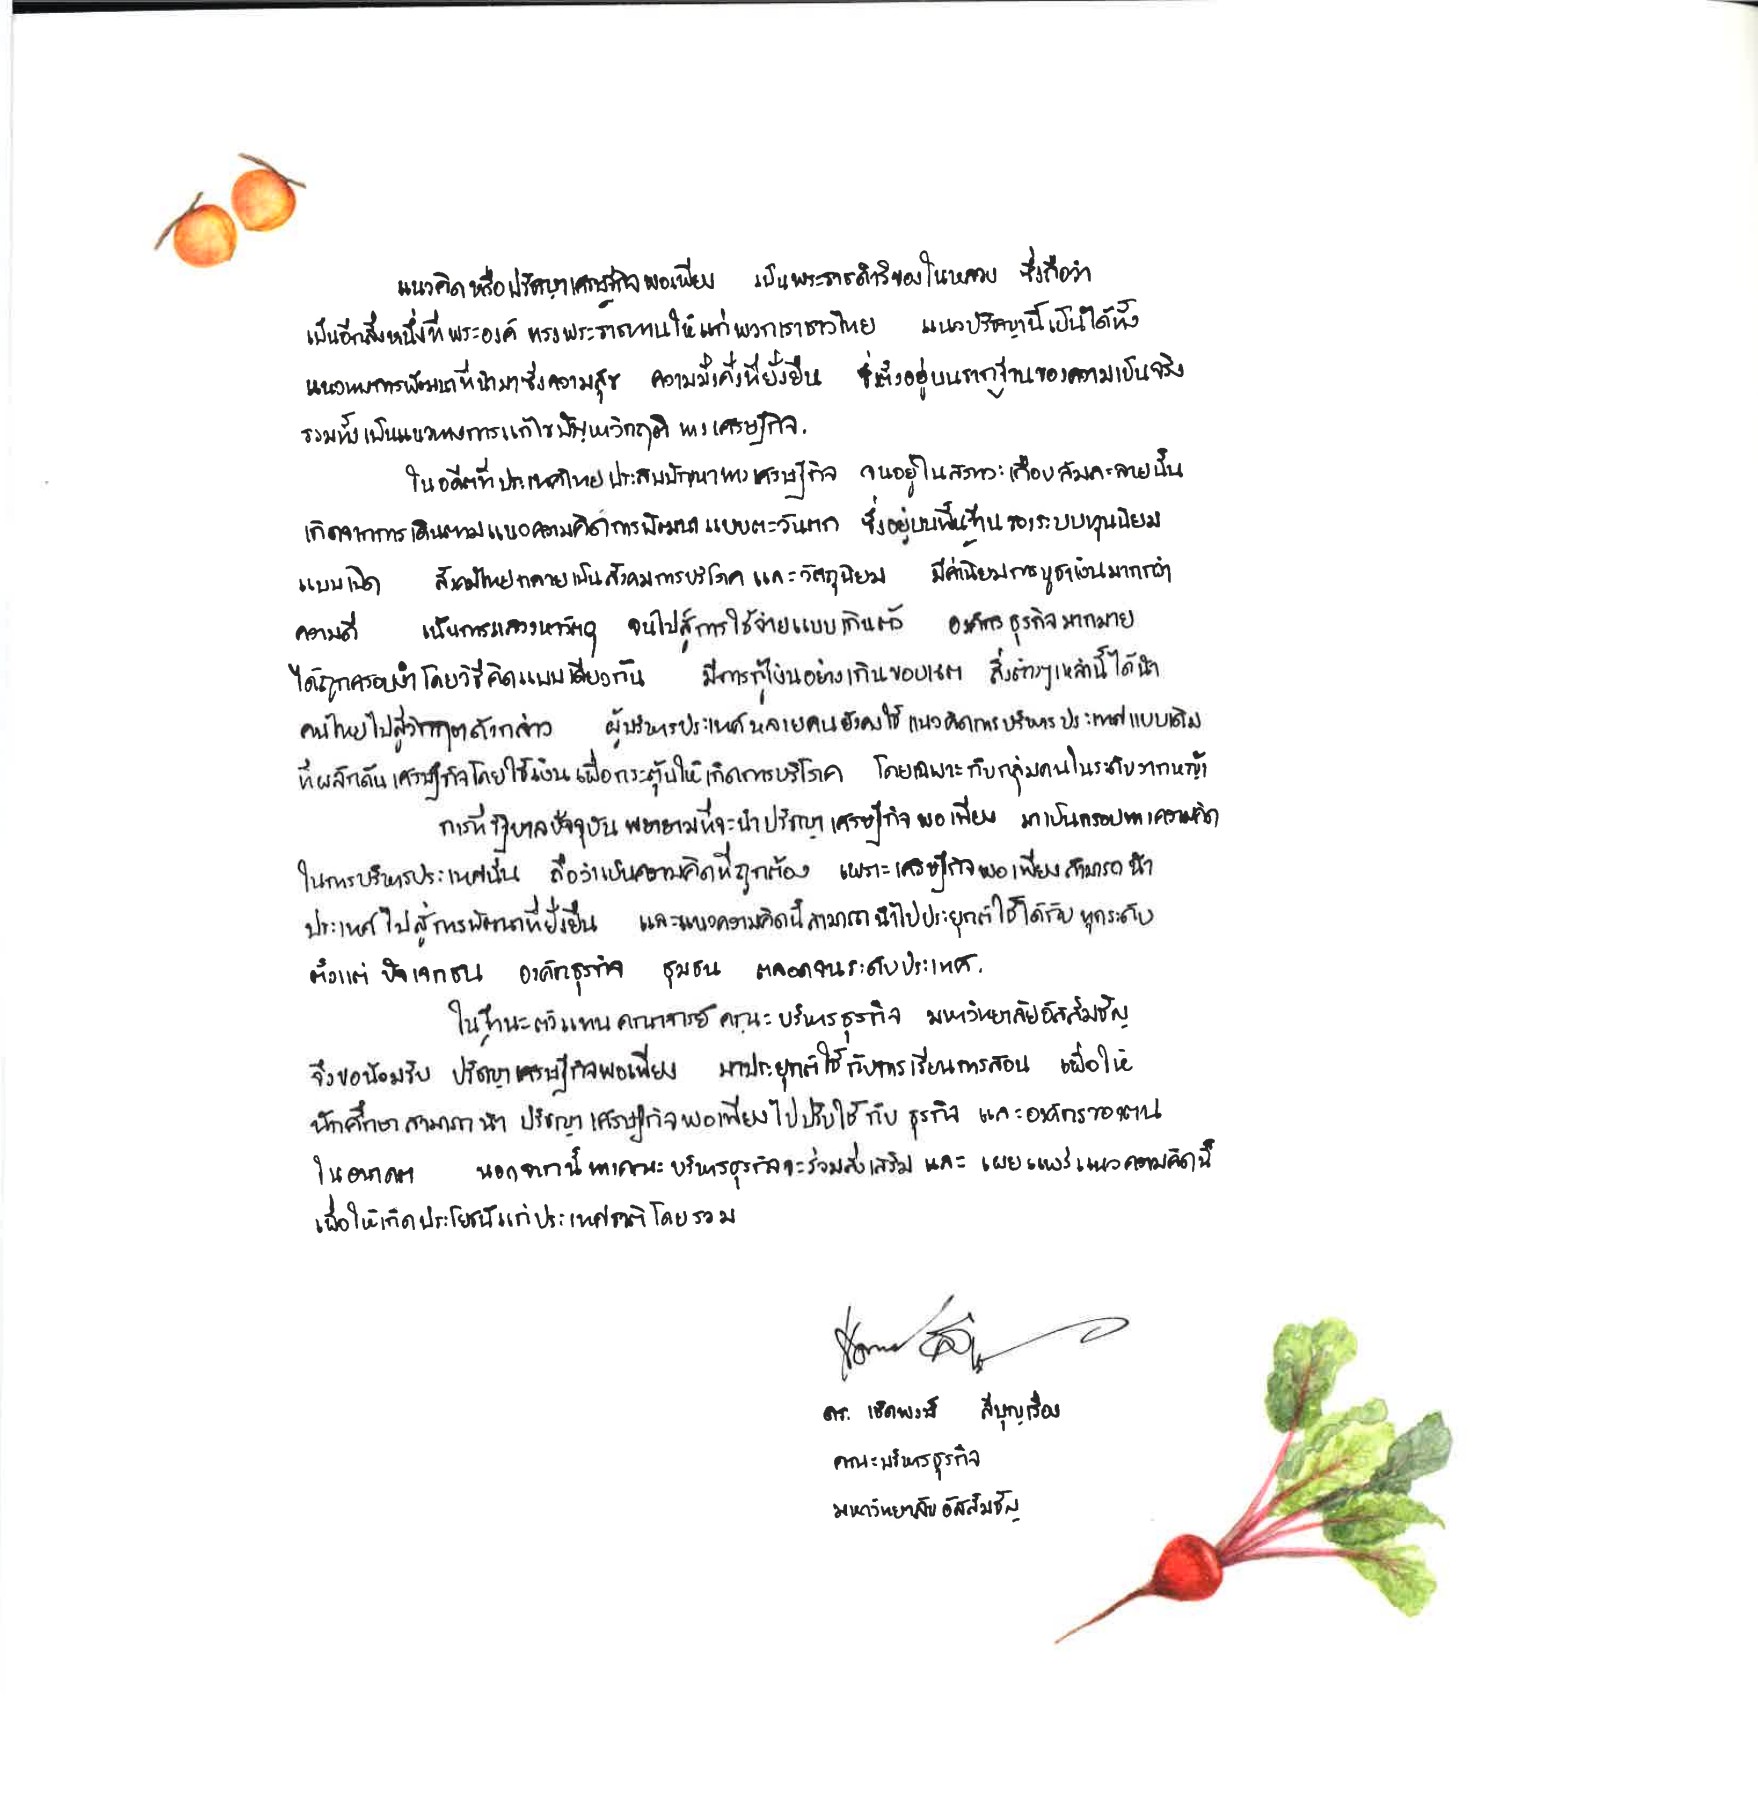 แนวคิดหรือปรัชญาเศรษฐกิจพอเพียง เป็นพระราชดำริของในหลวง ซึ่งถือว่า
เป็นอีกสิ่งหนึ่งที่พระองค์ ทรงพระราชทานให้แก่พวกเราชาวไทย แนวปรัชญานี้เป็นได้ทั้ง
แนวทางการพัฒนาที่นำมาซึ่งความสุข ความมั่งคั่งที่ยั่งยืน ซึ่งตั้งอยู่บนรากฐานของความเป็นจริง
รวมทั้งเป็นแนวทางการแก้ไขปัญหาวิกฤติ ทางเศรษฐกิจ.
ในอดีตที่ประเทศไทยประสบปัญหาทางเศรษฐกิจ จนอยู่ในสภาวะเกือบล้มละลายนั้น
เกิดจากการเดินตามแนวความคิดการพัฒนาแบบตะวันตก ซึ่งอยู่บนพื้นฐานของระบบทุนนิยม
แบบเปิด สังคมไทยกลายเป็นสังคมการบริโภค และวัตถุนิยม มีค่านิยมการบูชาเงินมากกว่า
ความดี เน้นการแสวงหาวัตถุ จนไปสู่การใช้จ่ายแบบเกินตัว องค์กรธุรกิจมากมาย
ได้ถูกครอบงำโดยวิธีคิดแบบเดียวกัน มีการกู้เงินอย่างเกินขอบเขต สิ่งต่างๆเหล่านี้ได้นำ
คนไทยไปสู่วิกฤตดังกล่าว ผู้บริหารประเทศหลายคนยังคงใช้แนวคิดการบริหารประเทศแบบเดิม
ที่ผลักดันเศรษฐกิจโดยใช้เงินเพื่อกระตุ้นให้เกิดการบริโภค โดยเฉพาะกับกลุ่มคนในระดับรากหญ้า
การที่รัฐบาลปัจจุบันพยายามที่จะนำปรัชญาเศรษฐกิจพอเพียง มาเป็นกรอบทางความคิด
ในการบริหารประเทศนั้น ถือว่าเป็นความคิดที่ถูกต้อง เพราะเศรษฐกิจพอเพียงสามารถนำ
ประเทศไปสู่การพัฒนาที่ยั่งยืน และแนวความคิดนี้สามารถนำไปประยุกต์ใช้ได้กับทุกระดับ
ตั้งแต่ ปัจเจกชน องค์กรธุรกิจ ชุมชน ตลอดจนระดับประเทศ.
ในฐานะตัวแทนคณาจารย์คณะบริหารธุรกิจ มหาวิทยาลัยอัสสัมชัญ
จึงขอน้อมรับ ปรัชญาเศรษฐกิจพอเพียง มาประยุกต์ใช้กับการเรียนการสอน เพื่อให้
นักศึกษาสามารถนำ ปรัชญาเศรษฐกิจพอเพียงไปปรับใช้กับ ธุรกิจ และองค์กรของตน
ในอนาคต นอกจากนี้ทางคณะบริหารธุรกิจจะร่วมส่งเสริม และ เผยแพร่แนวความคิดนี้
เพื่อให้เกิดประโยชน์แก่ประเทศชาติโดยรวม
ดร. เชิดพงษ์ สิบุญเรือง
คณะบริหารธุรกิจ
มหาวิทยาลัยอัสสัมชัญ